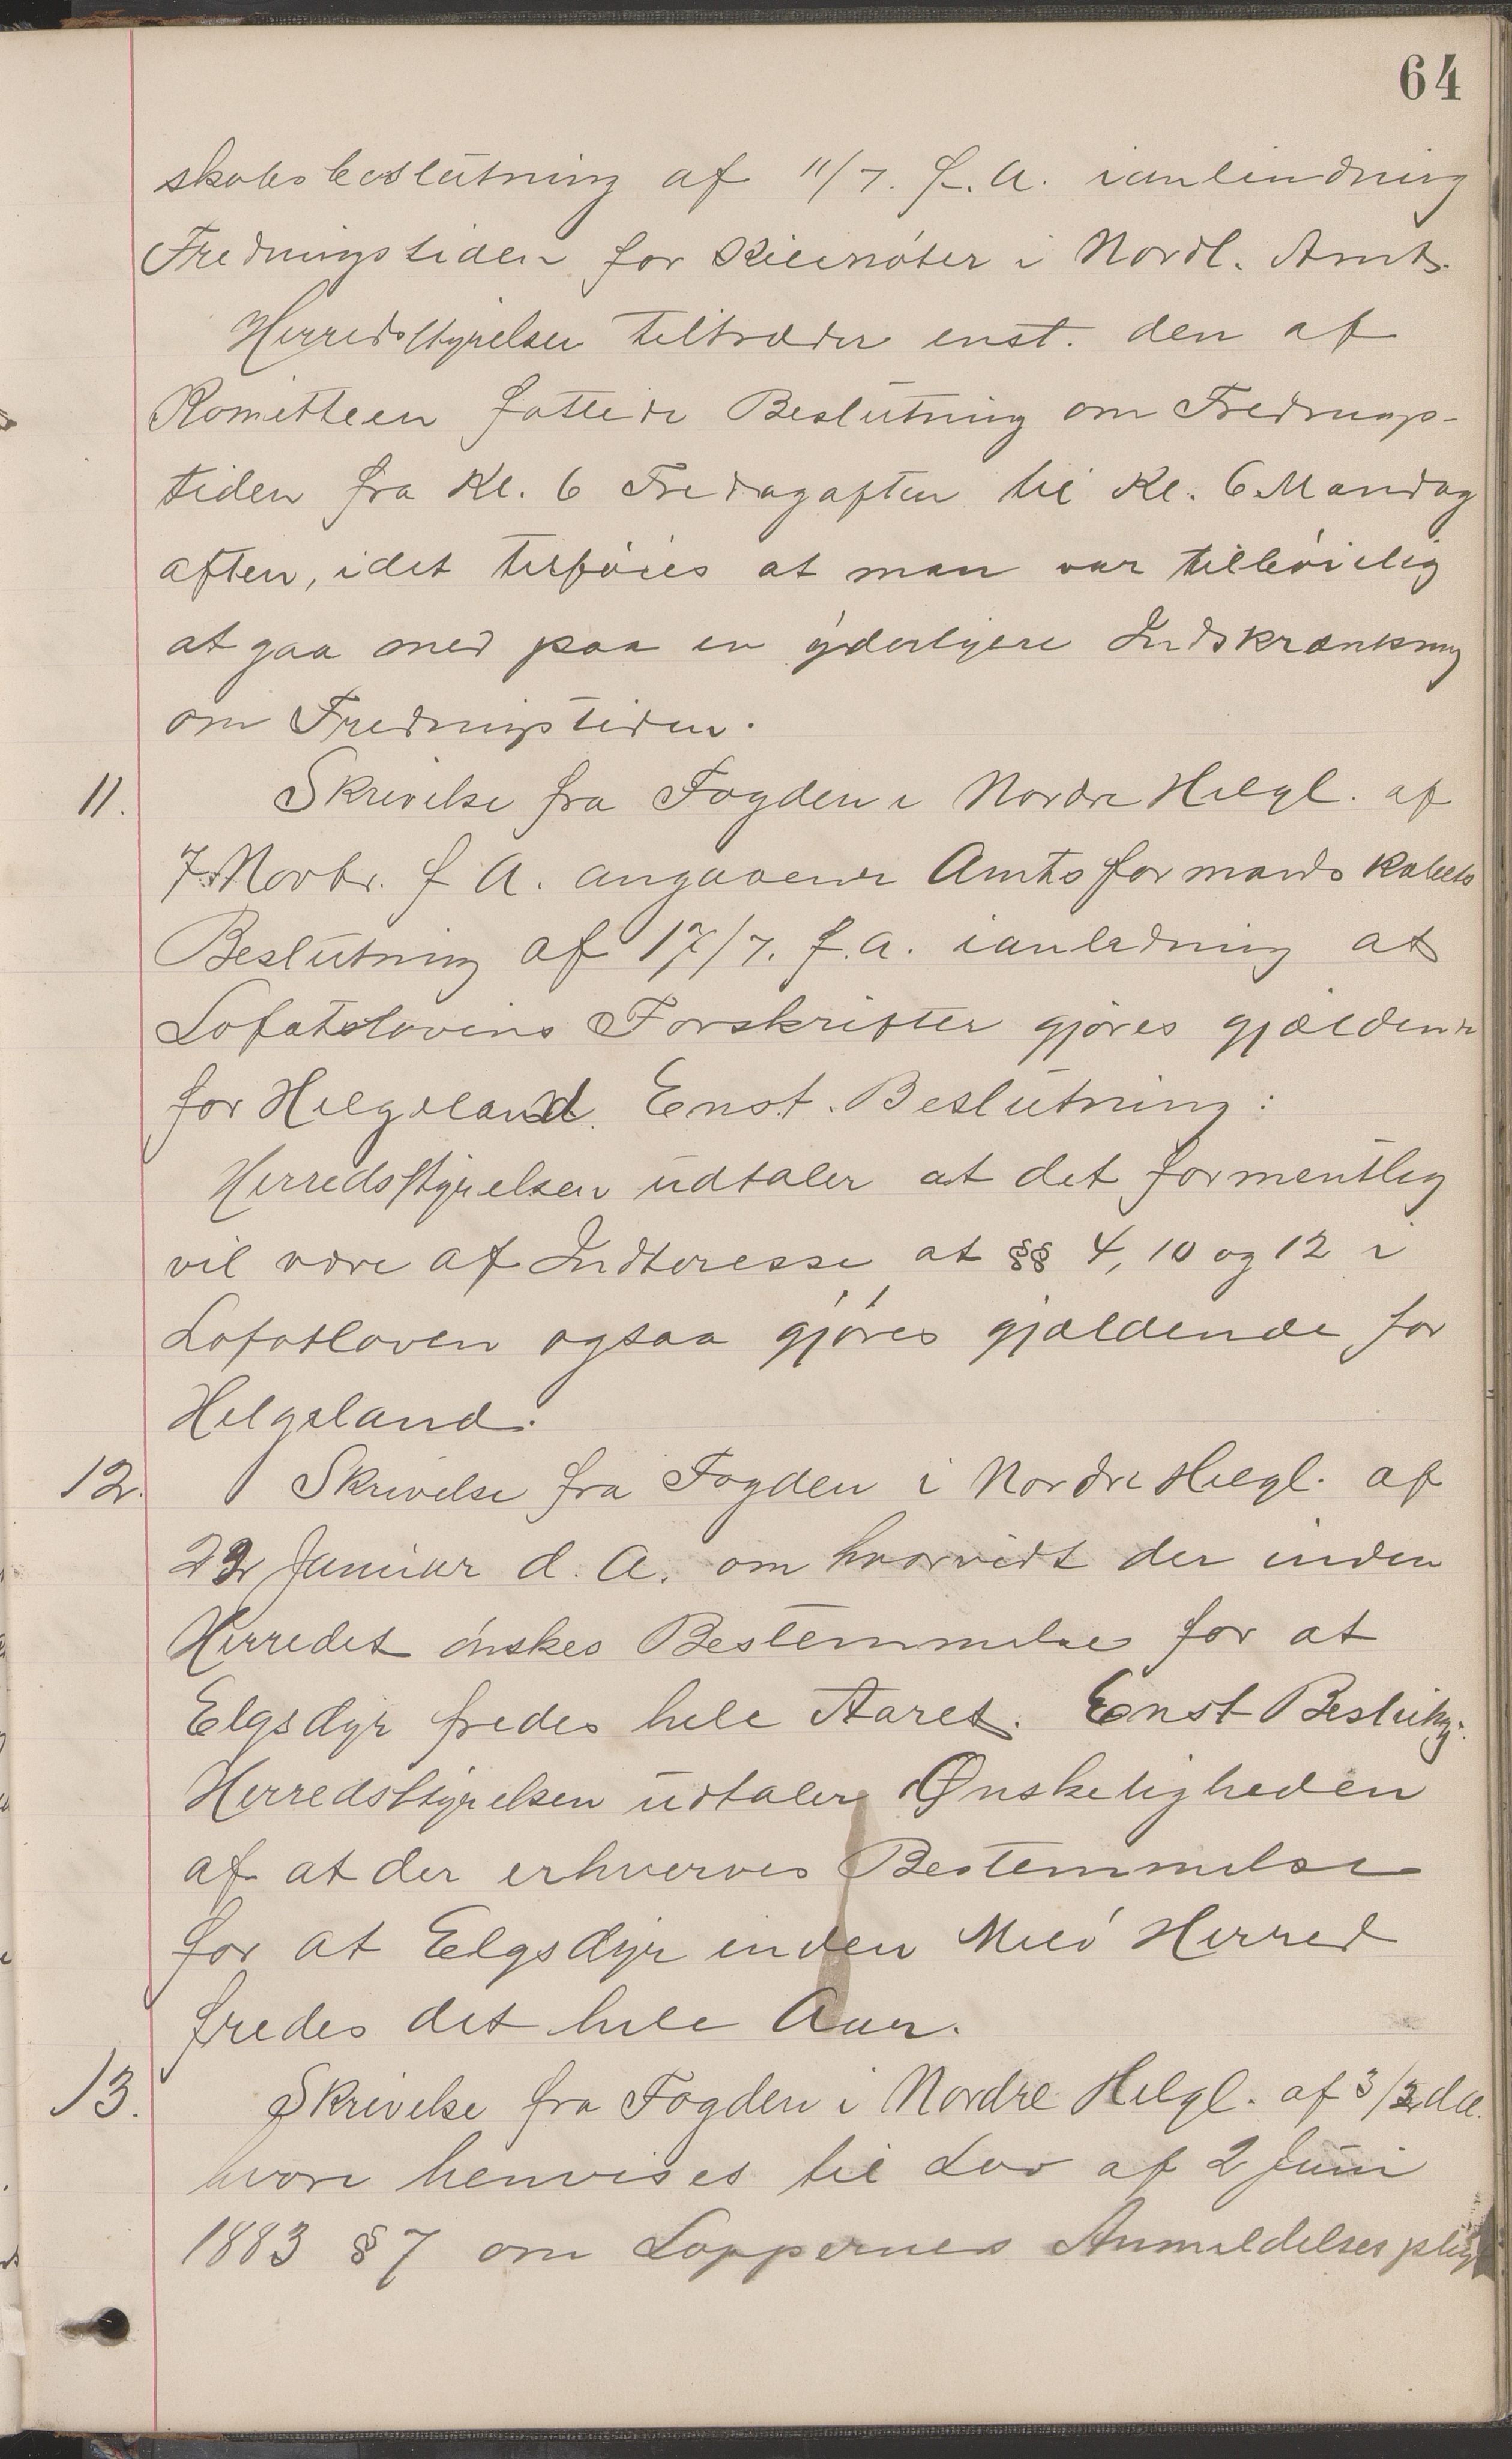 64
skabsbeslutning af 11/7. f. A. ianledning
Fredningstiden for Kilenöter i Nordl. Amt.
Herredsstyrelsen tiltræder enst. den af
Komitteen fattede Beslutning om Frednings-
tiden fra Kl. 6 Fredagaften til Kl. 6 Mandag
aften, idet tilföies at man var tilböielig
at gaa med paa en yderligere Indskrænkning
om Fredningstiden.
11. Skrivelse fra Fogden i Nordre Helgl. af
7 Novbr. f A. angaaende Amtsformandskabets
Beslutning af 17/7. f. A. ianledning at
Lofotslovens Forskrifter gjöres gjældende
for Helgeland. Enst. Beslutning:
Herredsstyrelsen udtaler at det formentlig
vil være af Indteresse at §§ 4, 10 og 12 i
Lofotloven ogsaa gjöres gjældende for
Helgeland.
12. Skrivelse fra Fogden i Nordre Helgl. af
22 Januar d. A. om hvorvidt der inden
Herredet önskes Bestemmelse for at
Elgsdyr fredes hele Aaret. Enst Beslutng:
Herredsstyrelsen udtaler Ønskeligheden
af at der erhverves Bestemmelse
for at Elgsdyr inden Melö Herred
fredes det hele Aar.
13. Skrivelse fra Fogden i Nordre Helgl. af 3/2 d A.
hvori henvises til Lov af 2 Juni
1883 § 7 om Lappernes Anmeldelsesplig